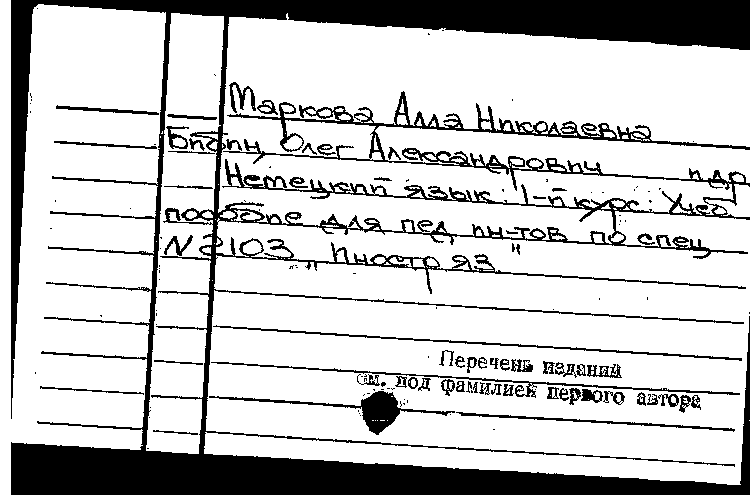 Маркова, Алла Николаевна
Бибин, Олег Александрович и др
Немецкий язык: 1-й курс: Учеб
пособие для пед ин-тов по спец
N 2103 „Иностр яз"
Перечень изданий
см. под фамилией первого автора